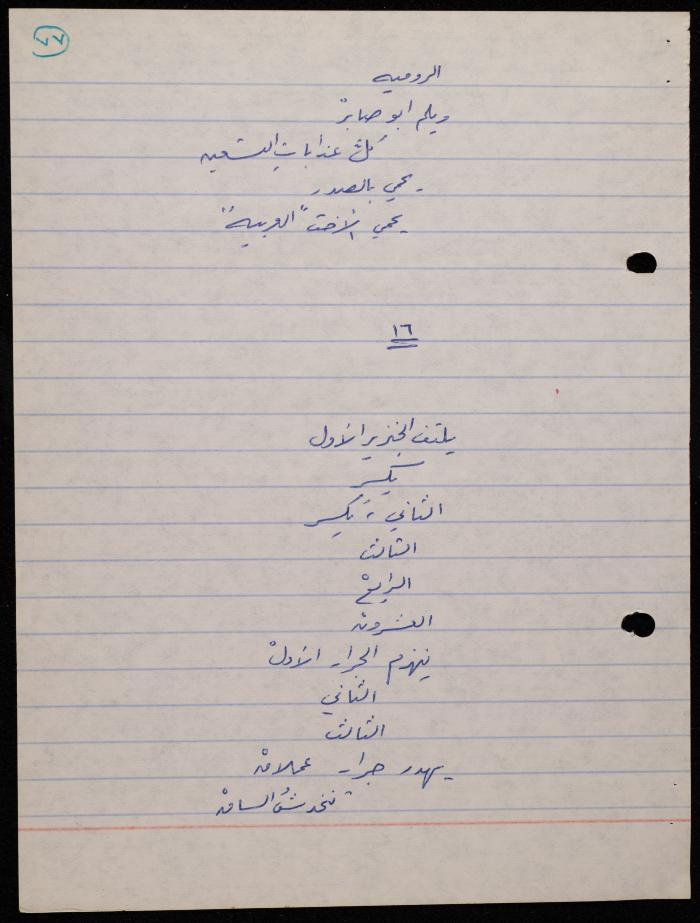 ٧٧
الروميه
ويلم ابو صابرْ
كلَّ عذابات التسعين
يحمي بالصدر
يحمي الأخت "العربية"
١٦
يلتف الجنزير الأول
يكسر
الثاني، يكسر
الثالث
الرابعْ
العشرون
ينهزم الجرار الأولْ
الثاني
الثالث
يهدر جرار عملاقْ
تنخدشُ الساقْ